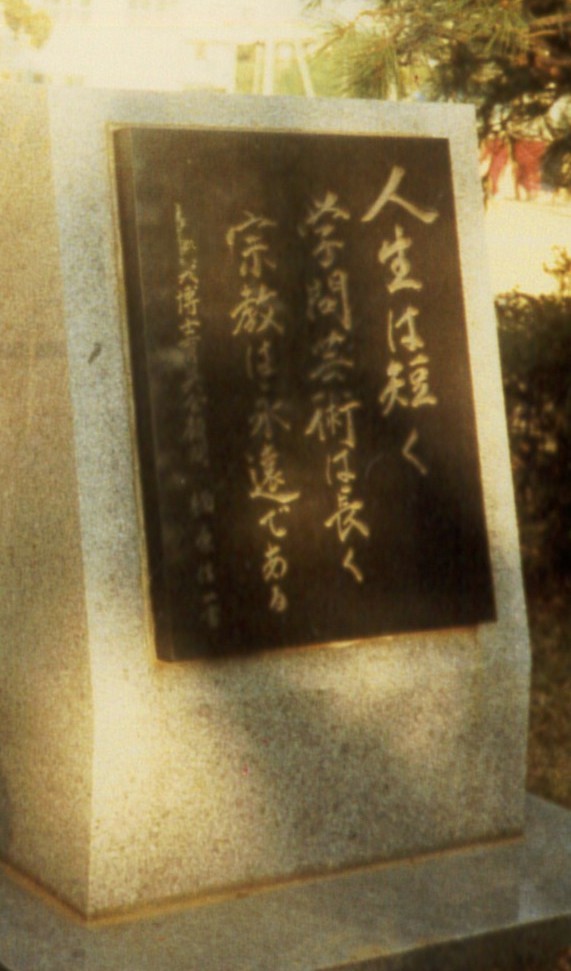 人生は短く
学問芸術は長く
宗教は永遠である
博士